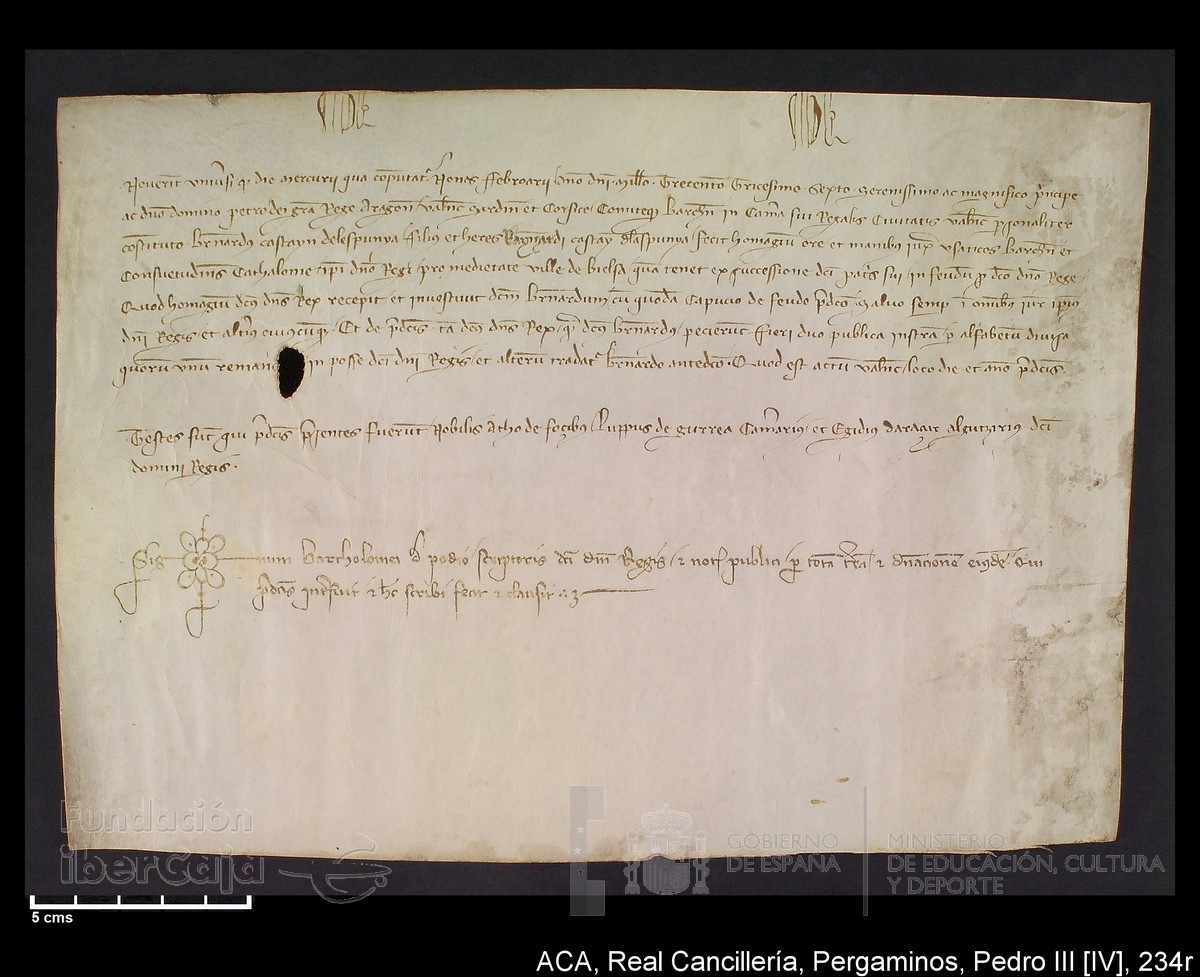 Noverit univ̄si q̄ die mercurii qua cōputat̄ Nonas ffebroarii Anno dn̄i Mill̄o Trecento Tricesimo Sexto Serenissimo ac magnifico p̄ncipe
ac dn̄o domino petro dei gr̄a Rege Aragon̄ Valn̄c Sardin̄ et Corsice Comiteq̄ Barch̄n in Cam̄a sui Regalis Civitatis Valn̄c p̱sonaliter
cōstituto Bn̄ardus castayn delespunya filius et heres Raynardi castay dl̄aspunya fecit homagiū ore et manibus iux̄ Usaticos Barch̄n et
Consuetudin̄s Cathalonie ip̄i dn̄o Regi pro medietate ville de bielsa quā tenet ex successione dc̄i pat̄s sui in feudū p̱ dc̄o dn̄o Rege
Quod homagiū dc̄s dn̄s Rex recepit et investivit dc̄m Bn̄ardum cū quodā Capucio de feudo p̄dc̄o Salvo semp̱ ī omībus iur̄ ip̄ius
dn̄i Regis et alt̄ius cuiuscūq̄ Et de p̄dc̄is tā dc̄s dn̄s Rex q̄ dc̄s Bn̄ardus pecierūt fieri duo publica instr̄a p̱ alfabetū divisa
quorū unū remane in posse dc̄i dn̄i Regis et alterū tradat̄ Bn̄ardo antedc̄o Quod est actū Valn̄c loco die et ano p̄dc̄is
Testes sūt qui p̄dc̄is p̄sentes fuerūt Nobilis Atho de focibus Luppus de gurrea Cam̄arius et Egidius daraair algutzirius dc̄i
domini Regis
Sig num Bartholomei d̄ podio scriptoris dc̄i dn̄i Regis & not̄ publici p̱ totā t̄rā & dn̄acionē eiusdē Qui
p̄dc̄is int̄fuit & h̄c scribi fecit & clausit
Fundación
iberCaja
GOBIERNO
DE ESPAÑA
MINISTERIO
DE EDUCACIÓN, CULTURA
Y DEPORTE
5 cms
ACA, Real Cancillería, Pergaminos, Pedro III [IV], 234r